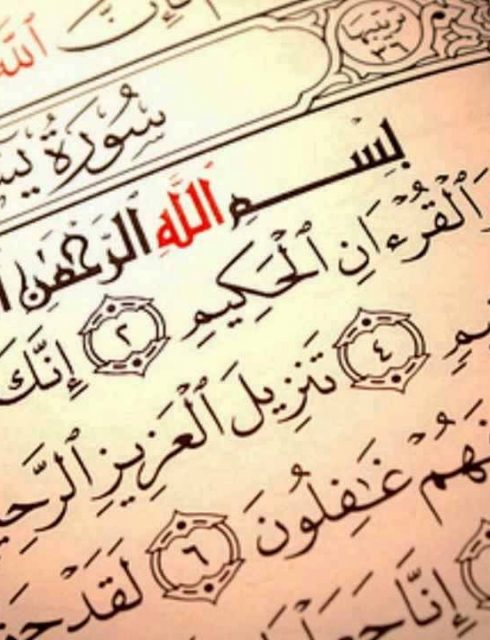 فَإِنَّ ٱللَّهَ
ترتيبها ٣٦
سُورَةُ يسٓ
بِسْمِ ٱللَّهِ ٱلرَّحْمَٰنِ
وَٱلْقُرْءَانِ ٱلْحَكِيمِ ٢ إِنَّكَ
٤ تَنزِيلَ ٱلْعَزِيزِ ٱلرَّحِيمِ
فَهُمْ غَٰفِلُونَ ٦ لَقَدْ حَقَّ
إِنَّا جَعَلْنَا